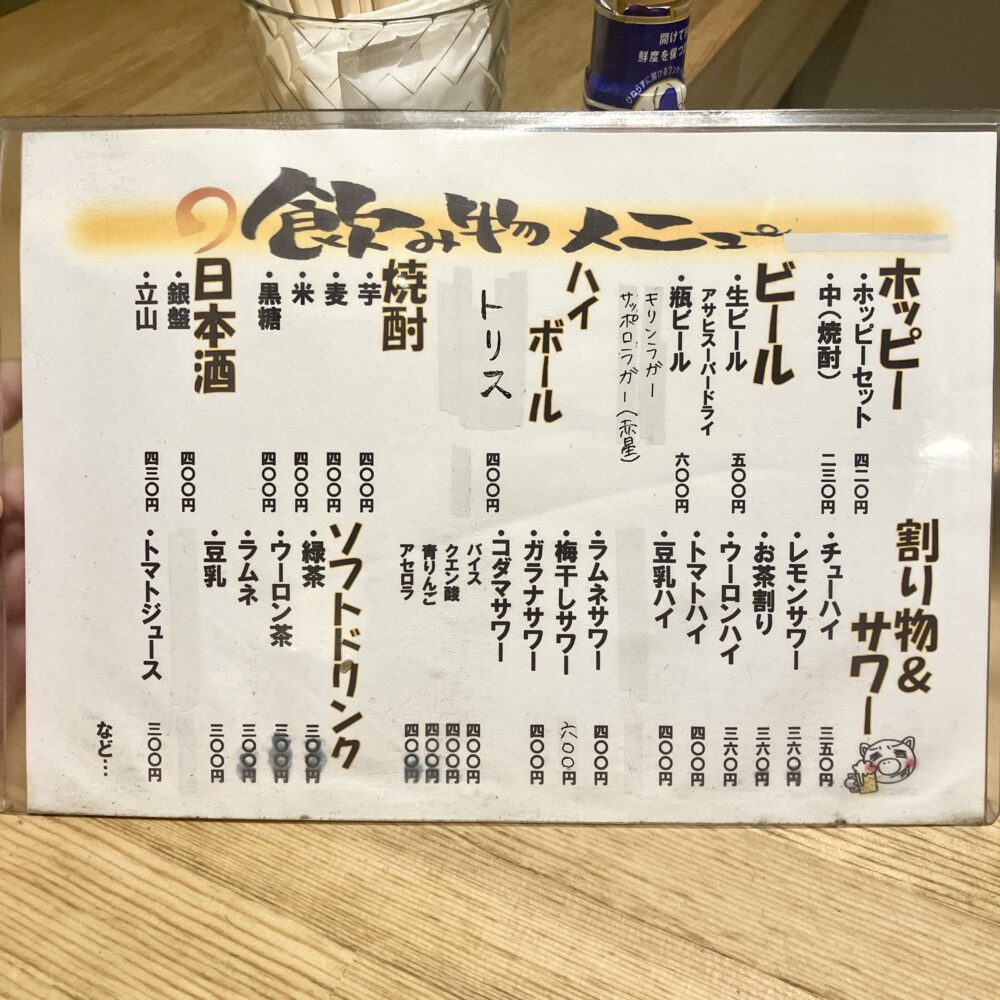 開けて
鮮度を保つ
飲み物メニュー
ホッピー
・ホッピーセット 四二〇円
・中（焼酎） 二三〇円
ビール
・生ビール 五〇〇円
アサヒスーパードライ
・瓶ビール 六〇〇円
キリンラガー
サッポロラガー（赤星）
ハイボール
トリス 四〇〇円
焼酎
・芋 四〇〇円
・麦 四〇〇円
・米 四〇〇円
・黒糖 四〇〇円
日本酒
・銀盤 四〇〇円
・立山 四三〇円
割り物&サワー
・チューハイ 三五〇円
・レモンサワー 三六〇円
・お茶割り 三六〇円
・ウーロンハイ 三六〇円
・トマトハイ 四〇〇円
・豆乳ハイ 四〇〇円
・ラムネサワー 四〇〇円
・梅干しサワー 六〇〇円
・ガラナサワー 四〇〇円
・コダマサワー
バイス 四〇〇円
クエン酸 四〇〇円
青りんご 四〇〇円
アセロラ 四〇〇円
ソフトドリンク
・緑茶 三〇〇円
・ウーロン茶 三〇〇円
・ラムネ 三〇〇円
・豆乳 三〇〇円
・トマトジュース 三〇〇円
など…